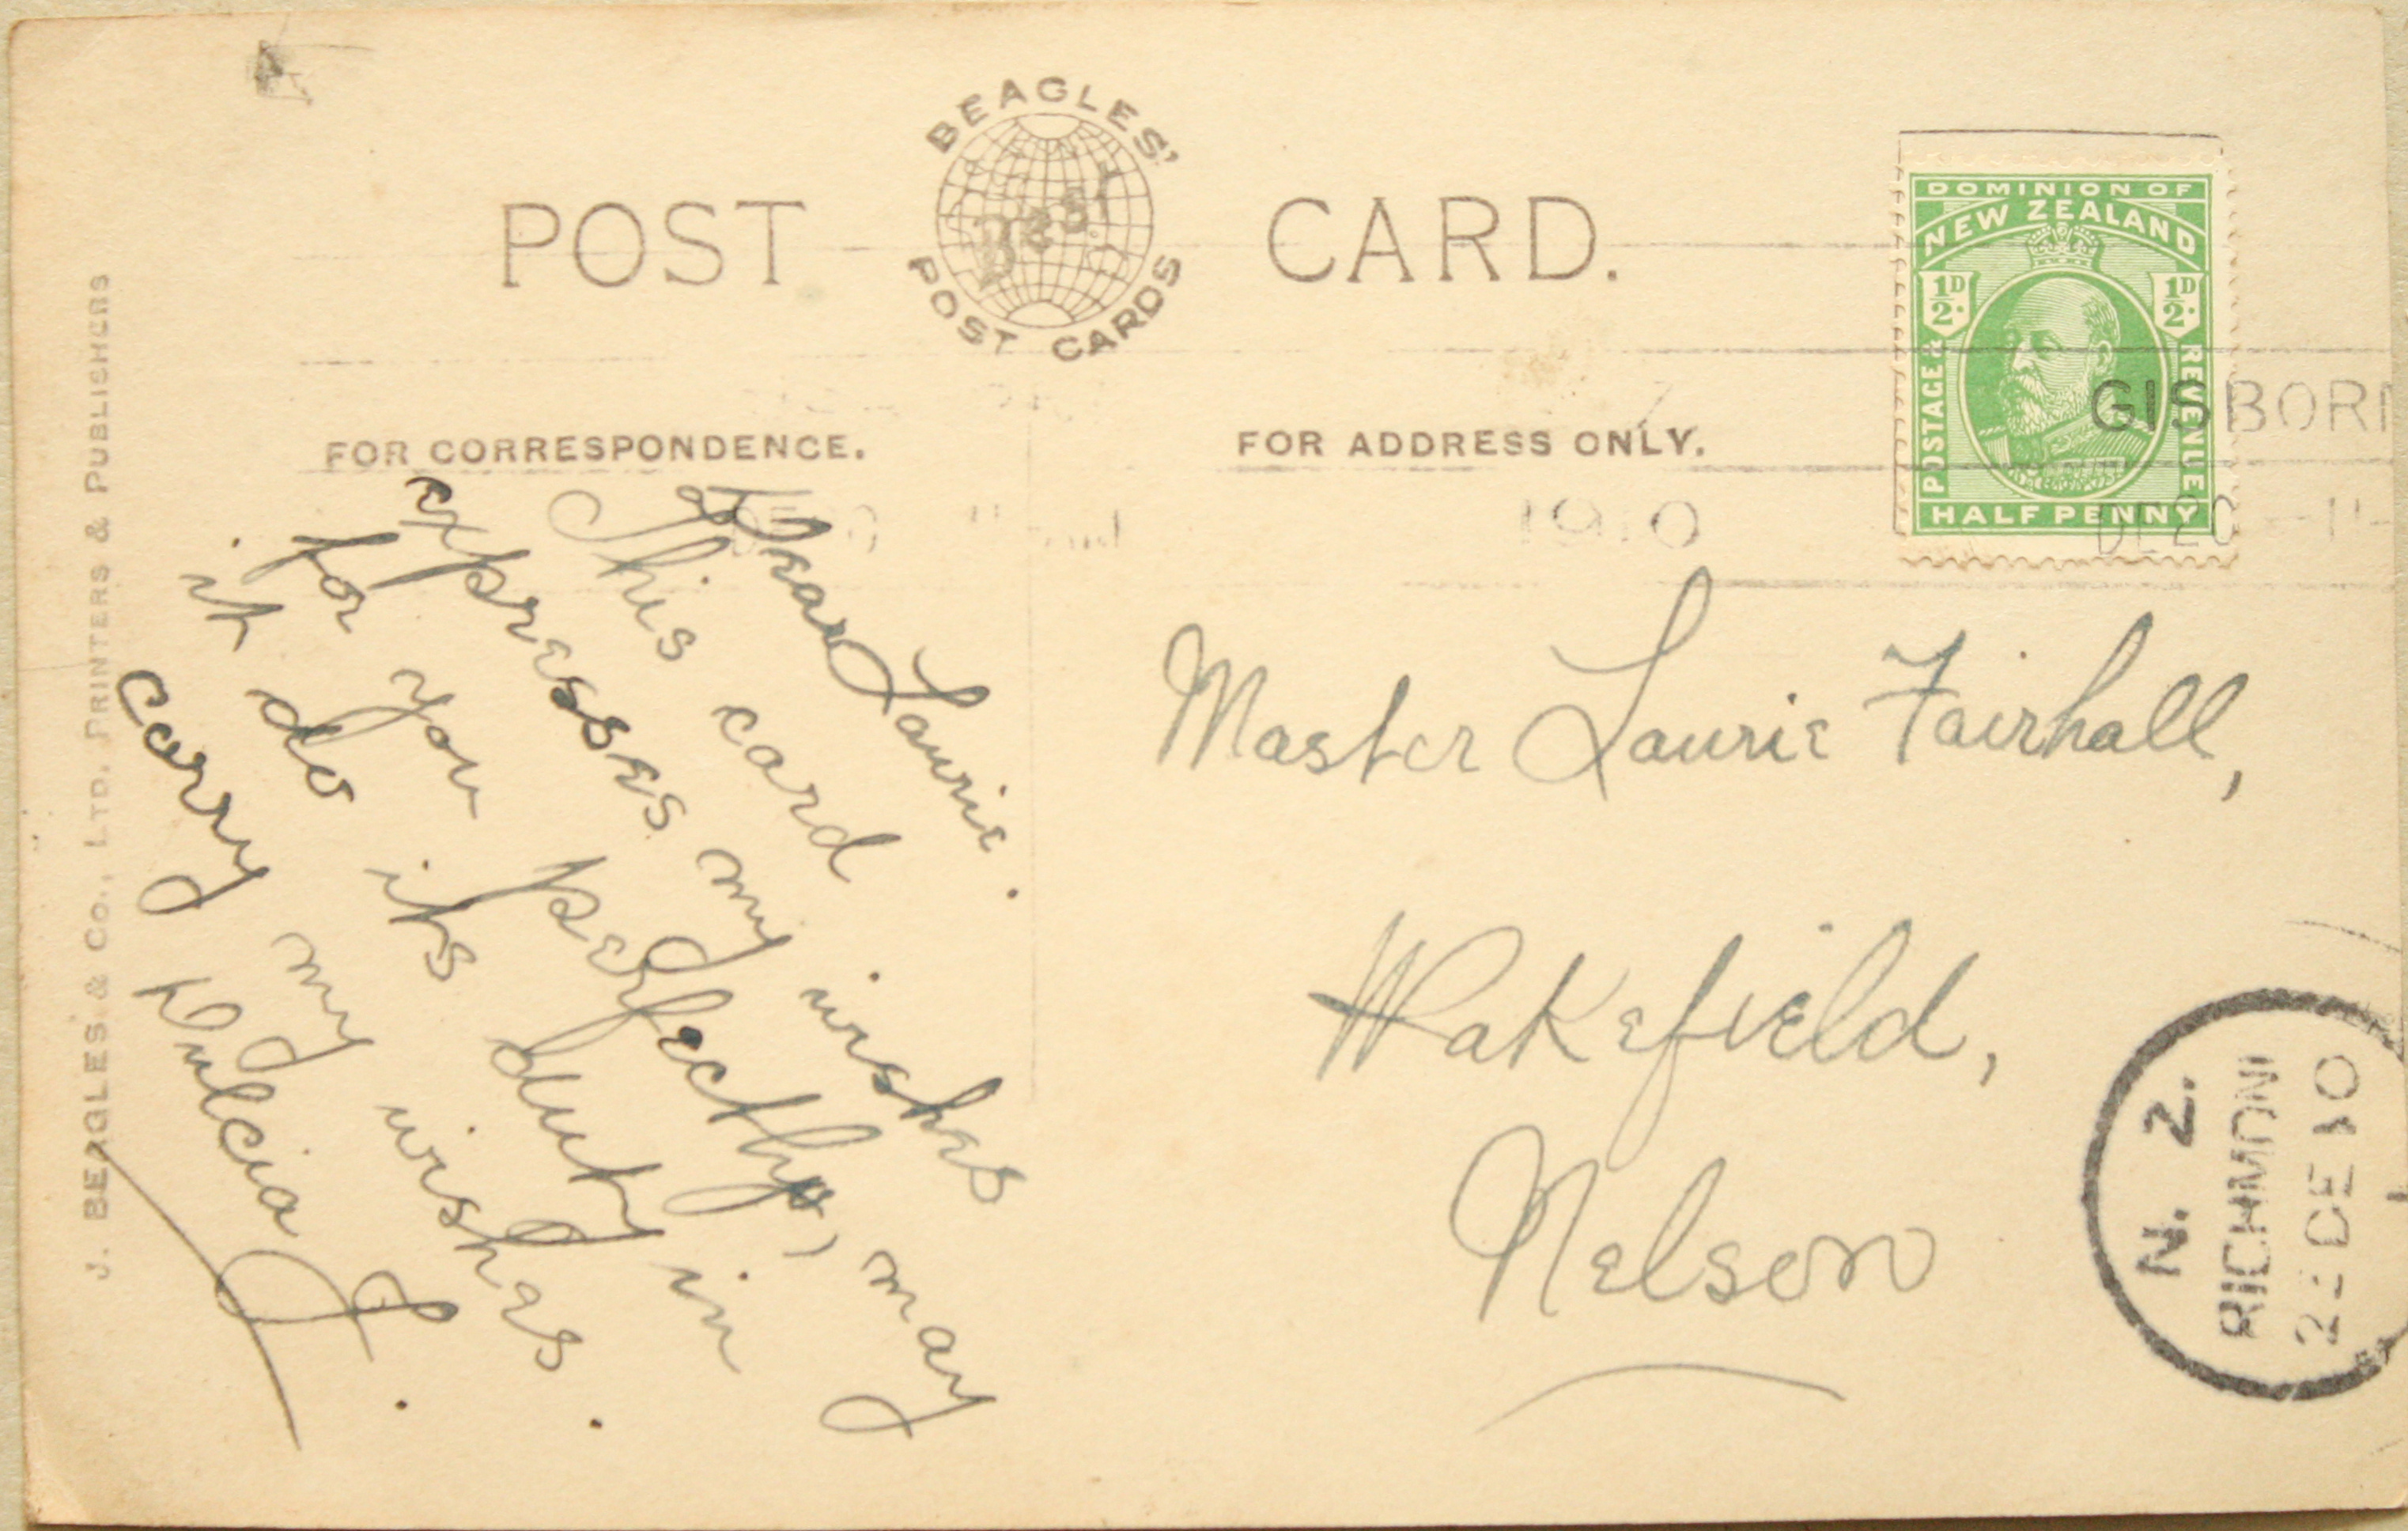 POST CARD.
BEAGLES'
Best
POST CARDS
FOR CORRESPONDENCE.
FOR ADDRESS ONLY.
J. BEAGLES & CO., LTD. PRINTERS & PUBLISHERS
Dear Laurie.
This card
expresses my wishes
for you perfectly, may
it do its duty in
carry my wishes.
Dulcia F.
Master Laurie Fairhall,
Wakefield,
Nelson
DOMINION OF
NEW ZEALAND
½D.
½D.
POSTAGE &
REVENUE
HALF PENNY
GISBORN
1910
DE 20
N. Z.
RICHMOND
DE 10